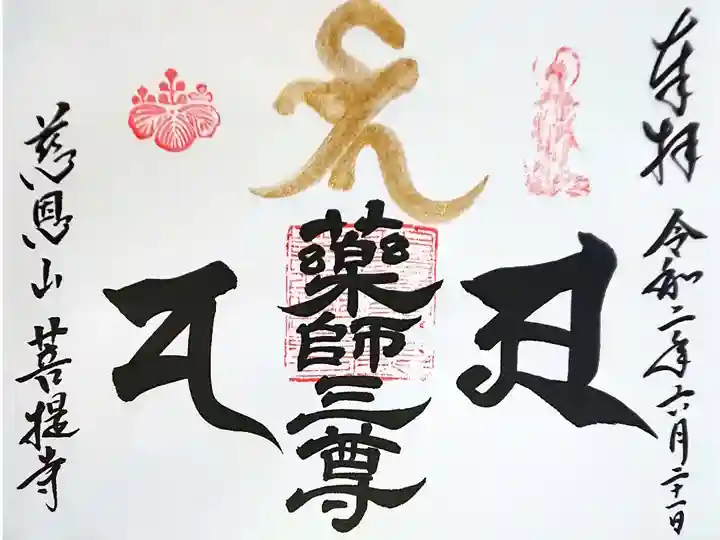 奉拝
令和二年六月二十一日
薬師三尊
慈恩山 菩提寺